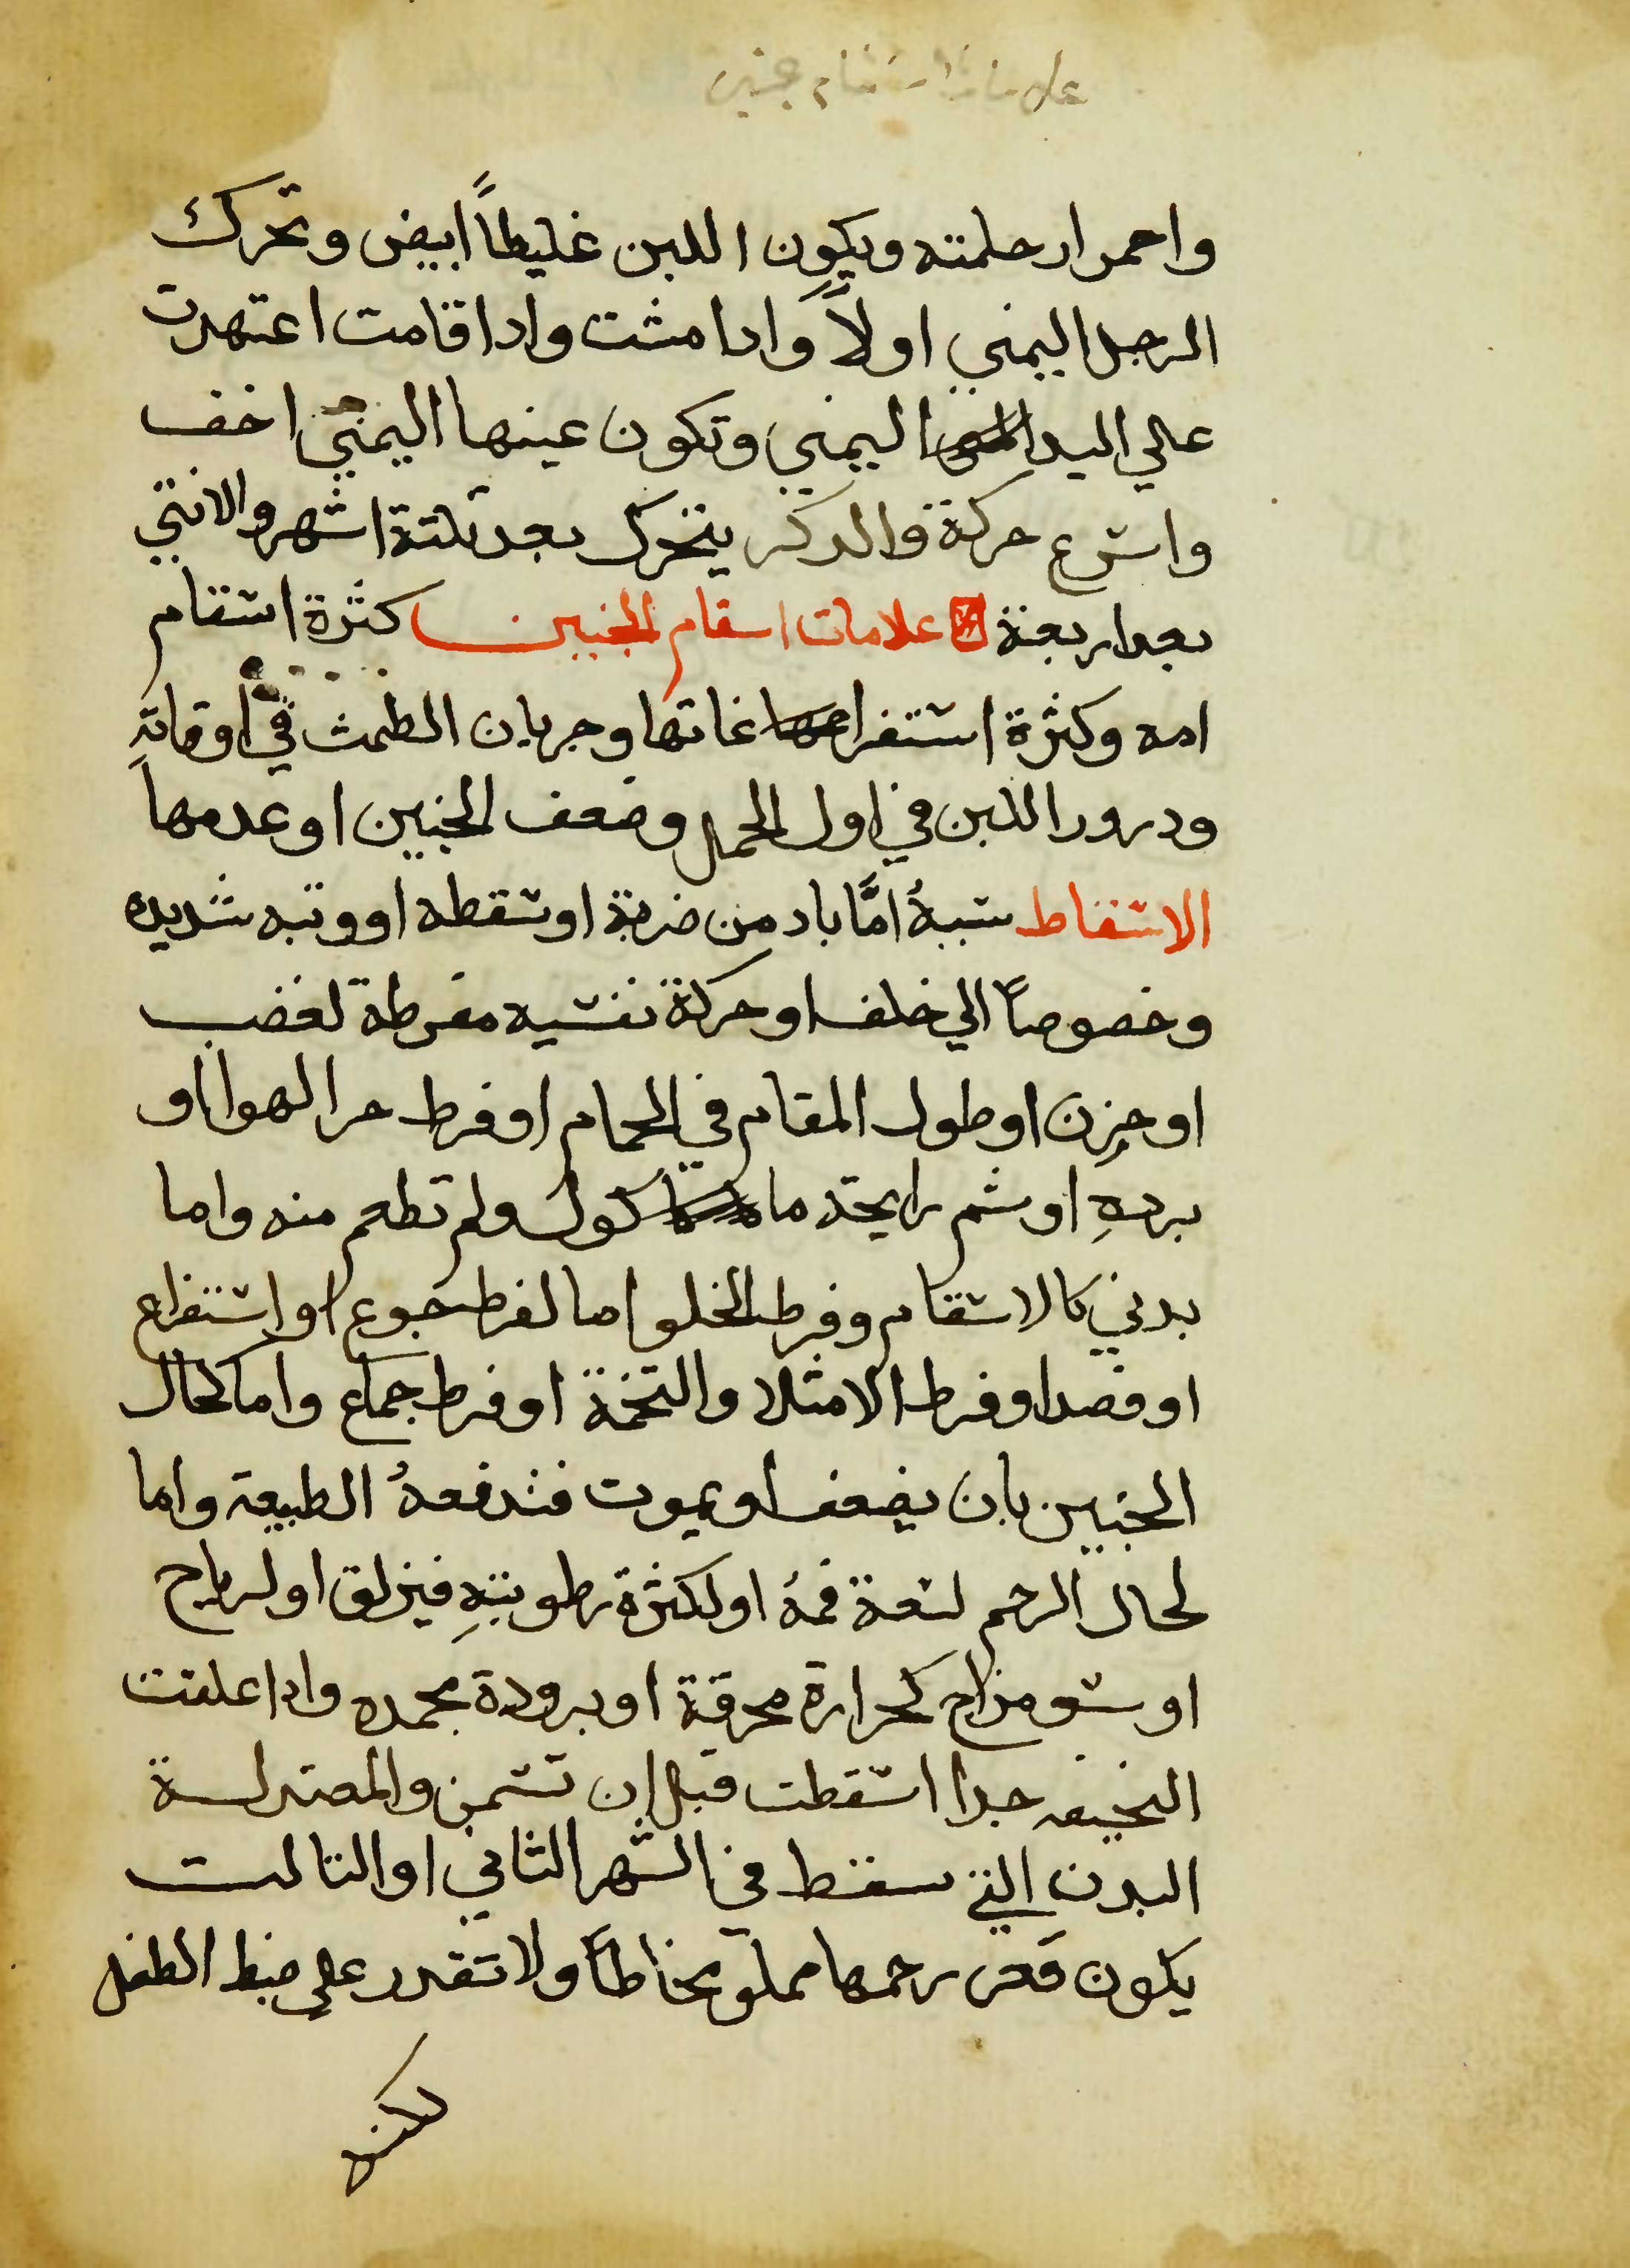 علامات اسقام جنين
واحمرار حلمته ويكون اللبن غليطاً ابيض وتحرك
الرجل اليمني اولاً وادا مشت وادا قامت اعتهدت
علي اليد اليمني وتكون عينها اليمني اخف
واسرع حركة والدكر يتحرك بعد تلتة اشهر والانتي
بعد اربعة علامات اسقام الجنين كثرة اسقام
امه وكثرة استفراغاتها وجريان الطمث في اوقاتهِ
ودرور اللبن في اول الحمل وضعف الجنين او عدمها
الاسقاط سببهُ امَّا باد من ضربة او سقطه او وتبه شديده
وخصوصاً الي خلف او حركة نفسيه مفرطة لغضب
او حزن او طول المقام في الحمام او فرط حر الهوا او
بردهِ او شم رايحة ماكول ولم تطعم منه واما
بدني كالاسقام وفرط الخلو اما لفرط جوع او استفراغ
او فصد او فرط الامتلا والتخمة او فرط جماع واما لحال
الجنين بان يضعف او يموت فتدفعهُ الطبيعة واما
لحال الرحم لسعة فمهُ او لكثرة رطوبتهِ فيزلق او لرياح
او سو مزاج لحرارة محرقة او برودة مجمده وادا علقت
النحيفه جدا اسقطت قبل ان تسمن والمعتدلة
البدن التي سقط في الشهر الثاني او التالت
يكون قعر رحمها مملو مخاطاً ولا تقدر علي ضبط الطفل
لكنه